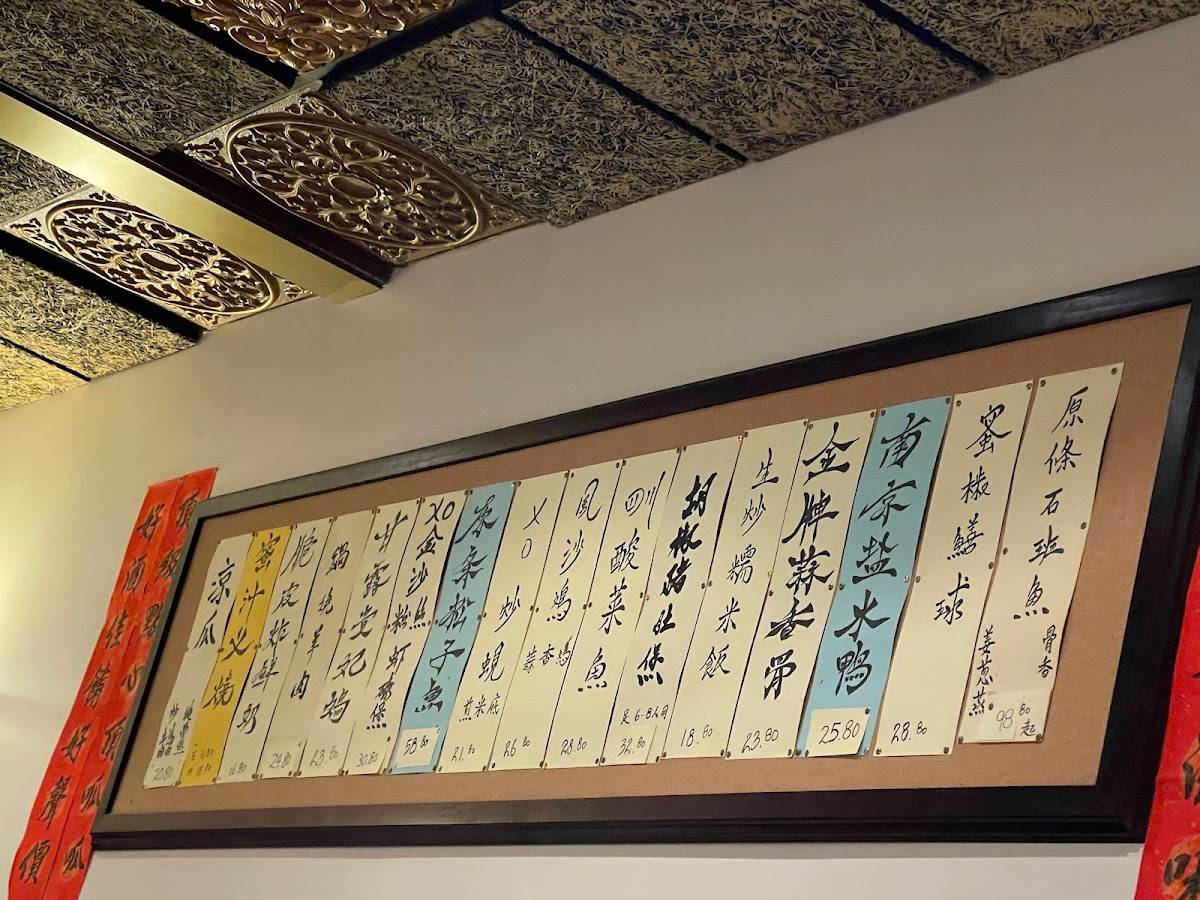 原條石班魚
骨香
姜葱蒸
98.80起
蜜椒鱔球
28.80
南京盐水鸭
25.80
金牌蒜香骨
23.80
生炒糯米飯
18.80
胡椒猪肚煲
足6-8人用
32.80
四川酸菜魚
28.80
風沙鸡
26.80
XO炒蜆
煎米底
21.80
原条松子魚
58.80
XO金沙
粉虾
煲
30.80
甘露貴妃鸡
23.80
鍋燒羊肉
29.80
脆皮炸鮮奶
16.80
蜜汁叉燒
凉瓜
20.80
頂級點心頂呱呱
好酒佳餚好聲價